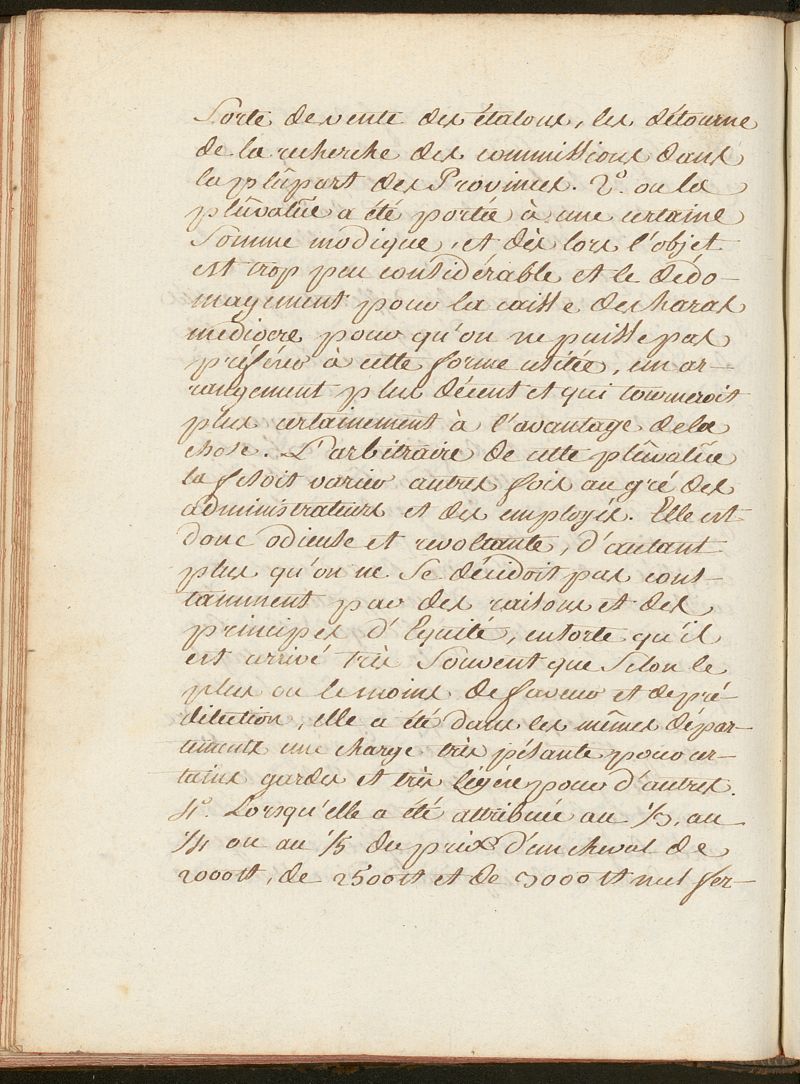 Sorte de vente des étalons, les détourne
de la recherche des commissions dans
la plûpart des Provinces. 2.° ou la
plûvalüe a été portée à une certaine
Somme modique, et dès lors l'objet
est trop peu considérable et le dédo-
magement pour la caisse des haras
mediocre pour qu'on ne puisse pas
préférer à cette forme usitée, un ar-
rangement plus décent et qui tourneroit
plus certainement à l'avantage de la
chose. L'arbitraire de cette plûvalüe
la fesoit varier autres fois au gré des
administrateurs et des employés. Elle est
donc odieuse et revoltante, d'autant
plus qu'on ne se décidoit pas cons-
tamment par des raisons et des
principes d'Equité, ensorte qu'il
est arrivé très Souvent que Selon le
plus ou le moins de faveur et de pré
dilection, elle a été dans les mêmes dépar-
tements une charge très pésante pour cer-
tains gardes et très légère pour d'autres.
4.° Lorsqu'elle a été attribuée au 1/3, au
1/4 ou au 1/5 du prix d'un cheval de
2000tt, de 2500tt et de 3000tt nul fer-